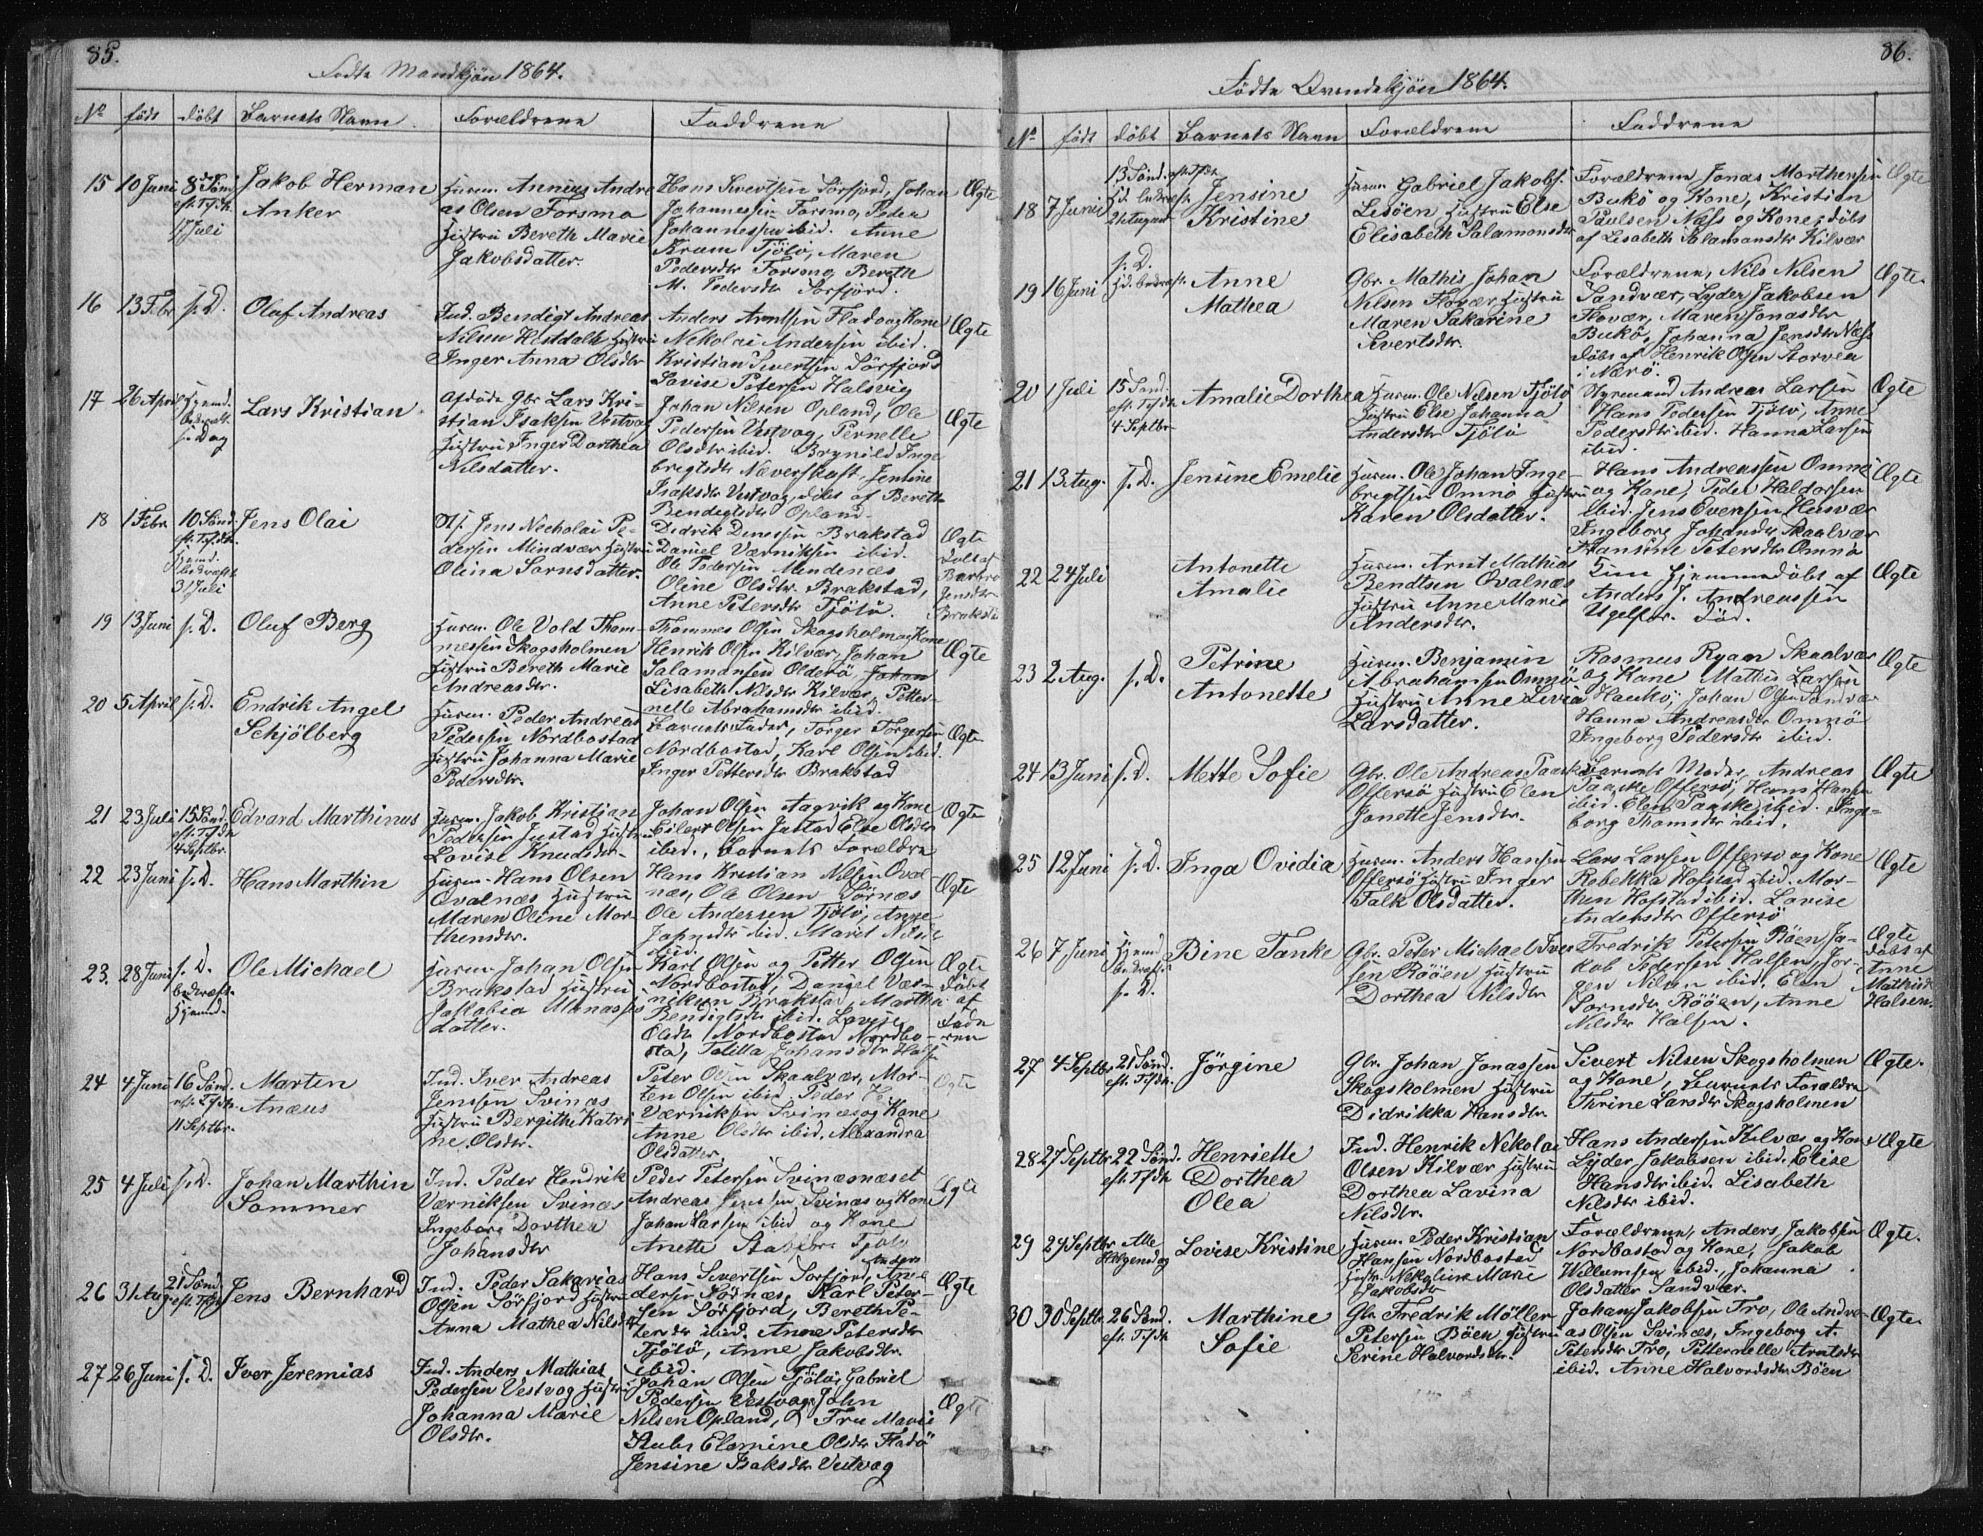 85.
Födte Mandkjön 1864.
No födt döbt Barnets Navn. Forældrene Faddrene
15 10 Juni 8de Sönd. eft. Tfdh. 17 Juli
Jakob Herman
Anker
Andre
as Olsen Forsmo
Hustru Bereth Marie
Jakobsdatter.
Hans Sivertsen Sörfjord, Johan
Johannessen Forsmo, Peder
Johannessen ibid. Anne
Kram Tjötö, Maren
Pedersdtr Forsmo, Bereth
M. Pedersdtr Sörfjord.
Ægte
16 13 Febr s. D.
Olaf Andreas
Ind. Bendigt Andreas
Nilsen Hustru
Inger Anna Olsdtr
Anders Arntsen Fladø og Kone
Nekolai Andersen ibid.
Kristian Sivertsen Sörfjord
Lovise Petersen Halsvig
Ægte
17 26 April Hjemd. bekræft. s. Dag
Lars Kristian.
Afdöde Gbr Lars Kri-
stian Isaksen Vestvog
Hustru Inger Dorthea
Nilsdatter.
Johan Nilsen Opland, Ole
Pedersen Vestvog, Pernelle
Olsdtr ibid. Brynild Inge
brigtsdtr Næverskaft, Jensine
Isaksdtr Vestvog, döbt af Bereth
Bendigtsdtr Opland.
Ægte
18 1 Febr 10 Sönd. eft. Tfdh. Hjemd. bekræft. 31 Juli
Jens Olai
Jens Necholai Pe-
dersen Mindvær Hustru
Olina Sörnsdatter.
Didrik Brakstad
Daniel Værniksen ibid.
Ole Pedersen Mindenes
Oline Olsdtr Brakstad,
Anne Petersdtr Tjötö.
Ægte
Döbt af
Barbro
Jensdtr
Brakstd
19 13 Juni s. D.
Oluf Berg
Husm. Ole Vold Thom-
messen Skogsholmen
Hustru Bereth Marie
Andreasdtr.
Thommes Olsen Skogsholm og Kone
Henrik Olsen Kilvær, Johan
Salamonsen Olderö, Johan
Lisabeth Nilsdtr Kilvær, Petter-
nelle Abrahamsdtr ibid.
Ægte
20 5 April s. D.
Endrik Angel
Schjölberg
Husm. Peder Andreas
Pedersen Nordbostad
Hustru Johanna Marie
Pedersdtr.
Barnets Fader, Torger Torgersen
Nordbostad, Karl Olsen ibid.
Inger Pettersdtr Brakstad
Ægte
21 23 Juli 15 Sönd. eft. Tfdh 4 Septbr.
Edvard Marthinus
Husm. Jakob Kristian
Pedersen Justad Hustru
Lovise Knudsdtr.
Johan Olsen Aagvik og Kone
Eilert Olsen Justad Else Olsdtr
ibid., Barnets Forældre
Ægte
22 23 Juni s. D.
Hans Marthin
Husm. Hans Olsen
Ovalnæs Hustru
Maren Oline Mor-
thensdtr.
Hans Kristian Nilsen Oval
næs, Ole Olsen Sörnæs
Ole Andersen Tjötö, Anne
ibid. Marit Nilsd
ibid.
Ægte
23. 28 Juni s. D. bekræft. Hjemd.
Ole Michael
Husm. Johan Olsen
Brakstad Hustru
Jakobia Manasses
datter.
Karl Olsen og Petter Olsen
Nordbostad, Daniel Vær-
niksen Brakstad, Marthe
Bendigtsdtr ibid. Lovise
Olsdtr Nordbostad Nordbo-
stad, Johansdtr Hals
Ægte
döbt
af
Fade
ren
24 4 Juni 16 Sönd. eft. Tfdh. 11 Septbr.
Martin
Anæus
Ind. Iver Andreas
Jenssen Svinæs
Hustru Bergithe Katri
ne Olsdtr.
Peter Olsen Skaalvær, Mor-
ten Olsen ibid Peder
Værniksen Svinæs og Kone
Anne Olsdtr ibid, Alexandra
Olsdatter.
Ægte
25 4 Juli s. D.
Johan Marthin
Sommer
Ind. Peder Hendrik
Værniksen Svinæs
Ingeborg Dorthea
Johansdtr
Peder Petersen Svinæsnæset
Andreas Jenssen Svinæs og Kone
Johan Larsen ibid og Kone
Anette Tjötö
Ægte
26 31 Aug. 21 Sönd. eft. Tfdh
Jens Bernhard
Ind. Peder Sakarias
Olsen Sörfjord Hustru
Anna Mathea Nilsdtr
Hans Sivertsen Sörfjord, Anders An-
dersen Sörnæs, Karl Peter-
sen Sörfjord, Bereth Pe-
tersdtr ibid. Anne Petersdtr
Tjötö, Anne Jakobsdtr.
ibid.
Ægte
27 26 Juni s. D.
Iver Jeremias
Ind. Anders Mathias
Pedersen Vestvog Hustru
Johanna Marie
Olsdtr.
Johan Olsen Tjötö, Gabriel
Pedersen Vestvog, John
Nilsen Opland, Fru Marie
Stub, Elemine Olsdtr Fladö
Jensine Isaksdtr Vestvog
Ægte
86.
Födte Qvindekjön 1864.
No födt döbt Barnets Navn Forældrene Faddrene
18 7 Juni 13 Sönd. eft. Tfdh Hjd. bekræft. 21 August
Jensine
Kristine
Husm. Gabriel Jakobs.
Lisöen, Hustru Else
Elisabeth Salamonsdtr
Forældrene Jonas Morthensen
Bukö og Kone, Kristian
Paulsen Næss og Kone, döbt
af Lisabeth Salamonsdtr Kilvær
Ægte
19 16 Juni s. D. Hjd. bekræft.
Anne
Mathea
Gbr. Mathis Johan
Nilsen Flovær, Hustru
Maren Sakarine
Sivertsdtr.
Forældrene, Nils Nilsen
Sandvær, Lyder Jakobsen
Flovær, Maren Jonasdtr
Bukö, Johanna Jensdtr Næss
döbt af Henrik Olsen Storvea
i Nærö.
Ægte.
20 1 Juli 15 Sönd. eft. Tfdh 4 Septbr
Amalie Dorthea
Husm. Ole Nilsen Tjötö
Hustru Else Johanna
Andersdtr Tjötö
Styrmand Andreas Larsen
Hans Pedersen Tjötö, Anne
Pedersdtr ibid. Hanna Larsen
ibid.
Ægte
21 13 Aug. s. D.
Jensine Emelie
Husm. Ole Johan Inge-
brigtsen Omnö Hustru
Karen Olsdatter.
Hans Andreassen Omnö
og Kone, Peder Haldorsen
ibid. Jens Evensen Husvær
Ingeborg Johansdtr Skaalvær
Hansine Petersdtr Omnö
Ægte
22 24 Juli
Antonette
Amalie
Husm. Arnt Mathias
Bendtsen Qvalnæs
Hustru Anne Marie
Andersdtr.
Kun hjemmedöbt af
Anders J. Andreassen
Död.
Ægte
23 2 Aug. s. D.
Petrine
Antonette
Husm. Benjamin
Abrahamsen Omnö
Hustru Anne Livia
Larsdatter.
Rasmus Ryan Skaalvær
og Kone Mathis Larsen
Haukö, Johan Olsen Sandvær
Hanna Andreasdtr Omnö
Ingeborg Pedersdtr ibid.
Ægte
24 13 Juni s. D.
Mette Sofie
Gbr. Ole Andreas Paaske
Offersö Hustru Elen
Janette Jensdtr.
Barnets Moder, Andreas
Paaske Offersö, Hans Hansen
ibid. Elen Paaske ibid. Inge-
borg Thomsdtr ibid.
Ægte
25 12 Juni s. D.
Inga Ovidia
Husm. Anders Hansen
Offersö Hustru Inger
Falk Olsdatter.
Lars Larsen Offersö og Kone
Rebekka Hofstad ibid. Mor-
then Hofstad ibid. Lovise
Andersdtr Offersö
Ægte
26 7 Juni Hjemd bekræft. s. D.
Bine Tanke
Gbr. Peter Michael Iver
sen Rööen Hustru
Dorthea Nilsdtr
Fredrik Petersen Böen Ja-
kob Pedersen Halsen, Jör-
gen Nilsen ibid. Elen
Sörnsdtr Rööen, Anne
Nilsdtr Halsen.
Ægte
döbt af
Anne
Mathisdtr
Halsen.
27 4 Septbr 21 Sönd. eft. Tfdh
Jörgine
Gbr. Johan Jonassen
Skogsholmen Hustru
Didrikka Hansdtr
Sivert Nilsen Skogsholmen
og Kone, Barnets Forældre
Thrine Larsdtr Skogsholmen
Ægte.
28 27 Septbr 22 Sönd. eft. Tfdh
Henriette
Dorthea
Olea
Ind. Henrik Nekolai
Olsen Kilvær Hustru
Dorthea Lavina
Nilsdtr.
Hans Andersen Kilvær og Kone
Lyder Jakobsen ibid. Elise
Hansdtr ibid. Lisabeth
Nilsdtr ibid.
Ægte
29 29 Septbr Alle Helgensdag
Lovise Kristine
Husm. Peder Kristian
Hansen Nordbostad
Hustr. Nekoline Marie
Jakobsdtr
Forældrene, Anders Jakobsen
Nordbostad og Kone, Jakob
Willumsen ibid., Johanna
Olsdatter Sandvær.
Ægte.
30 30 Septbr 26 Sönd. eft. Tfdh
Marthine
Sofie
Gbr Fredrik Möller
Petersen Böen, Hustru
Serine Halvordsdtr.
Johan Jakobsen Tro, Ole Andre-
as Olsen Svinæs, Ingeborg A.
Petersdtr Tro, Petternelle Arntsdtr
ibid. Anne Halvordsdtr Böen
Ægte